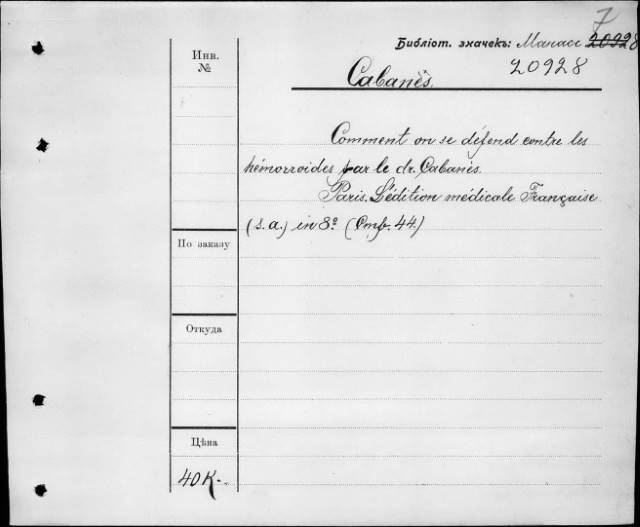 7
Библіот. значекъ: Манасс 20928
20928
Инв.
№
Cabanès.
Comment on se défend contre les
hémorroides par le dr. Cabanès.
Paris. L'édition médicale Française
(s. a.) in 8º (Стр. 44.)
По заказу
Откуда
Цѣна
40 К.